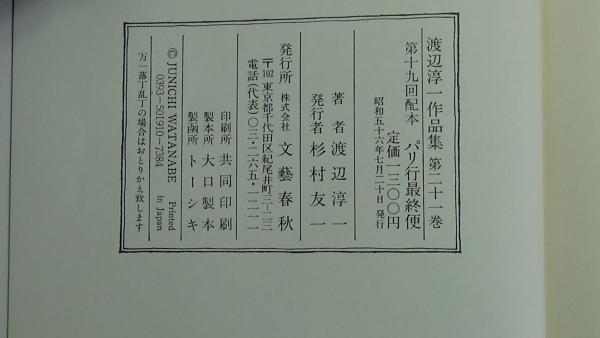 渡辺淳一作品集 第二十一巻
第十九回配本 パリ行最終便
定価一三〇〇円
昭和五十六年七月二十日 発行
著者 渡辺淳一
発行者 杉村友一
発行所 株式会社 文藝春秋
〒102 東京都千代田区紀尾井町三-二三
電話(代表)〇三・二六五・一二一一
印刷所 共同印刷
製本所 大口製本
製函所 トーシキ
© JUNICHI WATANABE Printed in Japan
0393-501910-7384
万一落丁乱丁の場合はおとりかえ致します